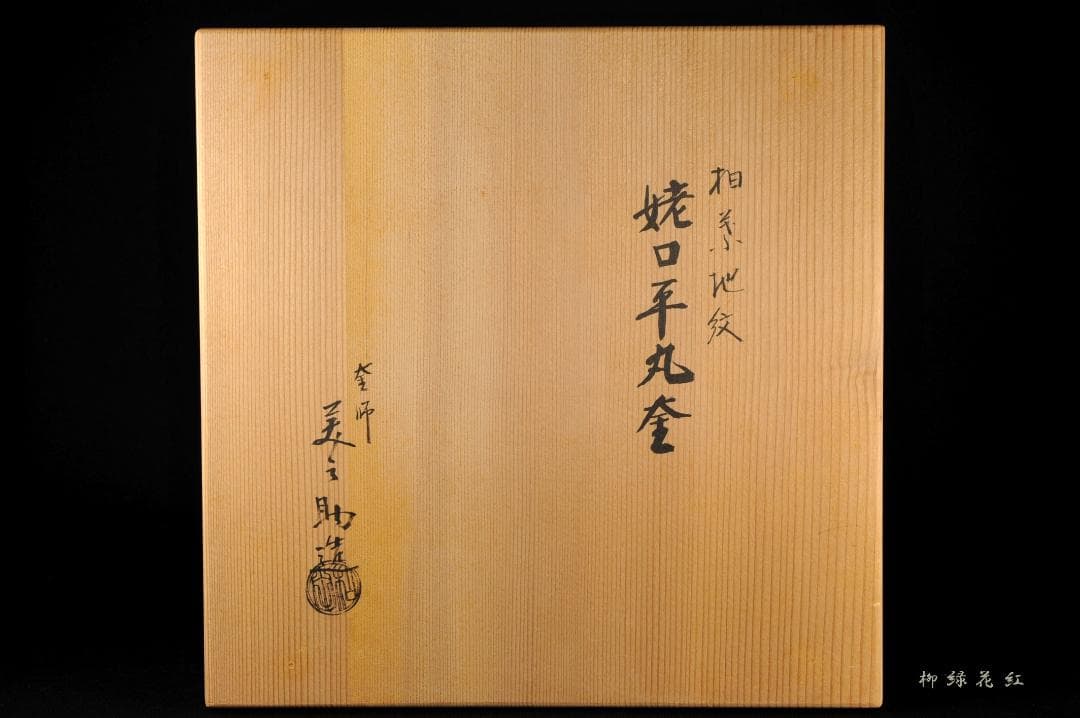 柏葉地紋
姥口平丸釜
釜師
美之助造
柳緑花紅